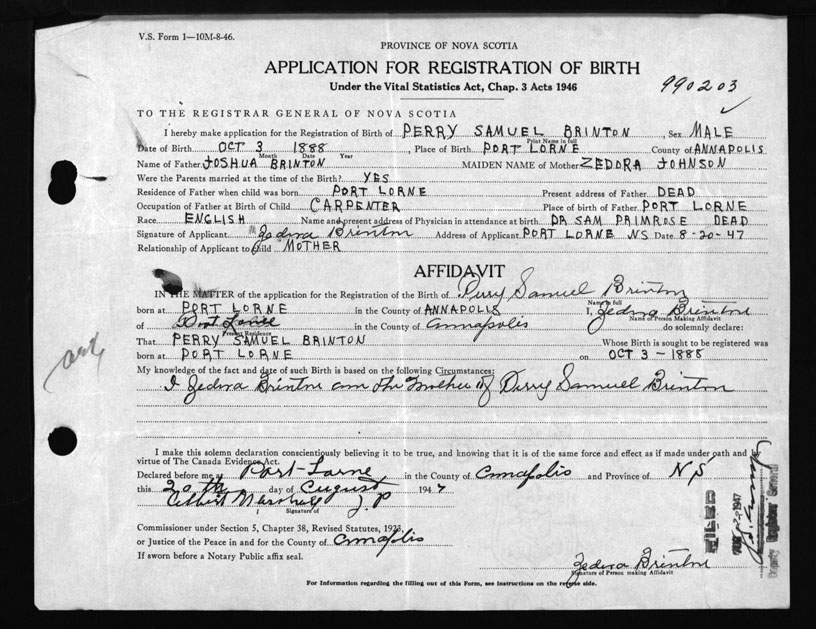 V.S. Form 1—10M-8-46.
PROVINCE OF NOVA SCOTIA
APPLICATION FOR REGISTRATION OF BIRTH
Under the Vital Statistics Act, Chap. 3 Acts 1946
990203
TO THE REGISTRAR GENERAL OF NOVA SCOTIA
I hereby make application for the Registration of Birth of PERRY SAMUEL BRINTON, Sex MALE
Print Name in full
Date of Birth OCT 3 1888, Place of Birth PORT LORNE County of ANNAPOLIS
Month Date Year
Name of Father JOSHUA BRINTON MAIDEN NAME of Mother ZEDORA JOHNSON
Were the Parents married at the time of the Birth? YES
Residence of Father when child was born PORT LORNE Present address of Father DEAD
Occupation of Father at Birth of Child CARPENTER Place of birth of Father PORT LORNE
Race ENGLISH Name and present address of Physician in attendance at birth DR SAM PRIMROSE DEAD
Signature of Applicant Zedora Brinton Address of Applicant PORT LORNE NS Date 8-20-47
Relationship of Applicant to Child MOTHER
AFFIDAVIT
IN THE MATTER of the application for the Registration of the Birth of Perry Samuel Brinton
Name in full
born at PORT LORNE in the County of ANNAPOLIS I, Zedora Brinton
Name of Person Making Affidavit
of Port Lorne in the County of Annapolis do solemnly declare:
Present Residence
That PERRY SAMUEL BRINTON Whose Birth is sought to be registered was
born at PORT LORNE on OCT 3 - 1888
My knowledge of the fact and date of such Birth is based on the following Circumstances:
I Zedora Brinton am the Mother of Perry Samuel Brinton
I make this solemn declaration conscientiously believing it to be true, and knowing that it is of the same force and effect as if made under oath and by
virtue of The Canada Evidence Act.
Declared before me at Port Lorne in the County of Annapolis and Province of N S
this 20th day of August 1947
Albert Marshall J.P
Signature of
Commissioner under Section 5, Chapter 38, Revised Statutes, 1923,
or Justice of the Peace in and for the County of Annapolis
If sworn before a Notary Public affix seal.
Zedora Brinton
Signature of Person making Affidavit
For Information regarding the filling out of this Form, see instructions on the reverse side.
FILED
1947
Deputy Registrar General